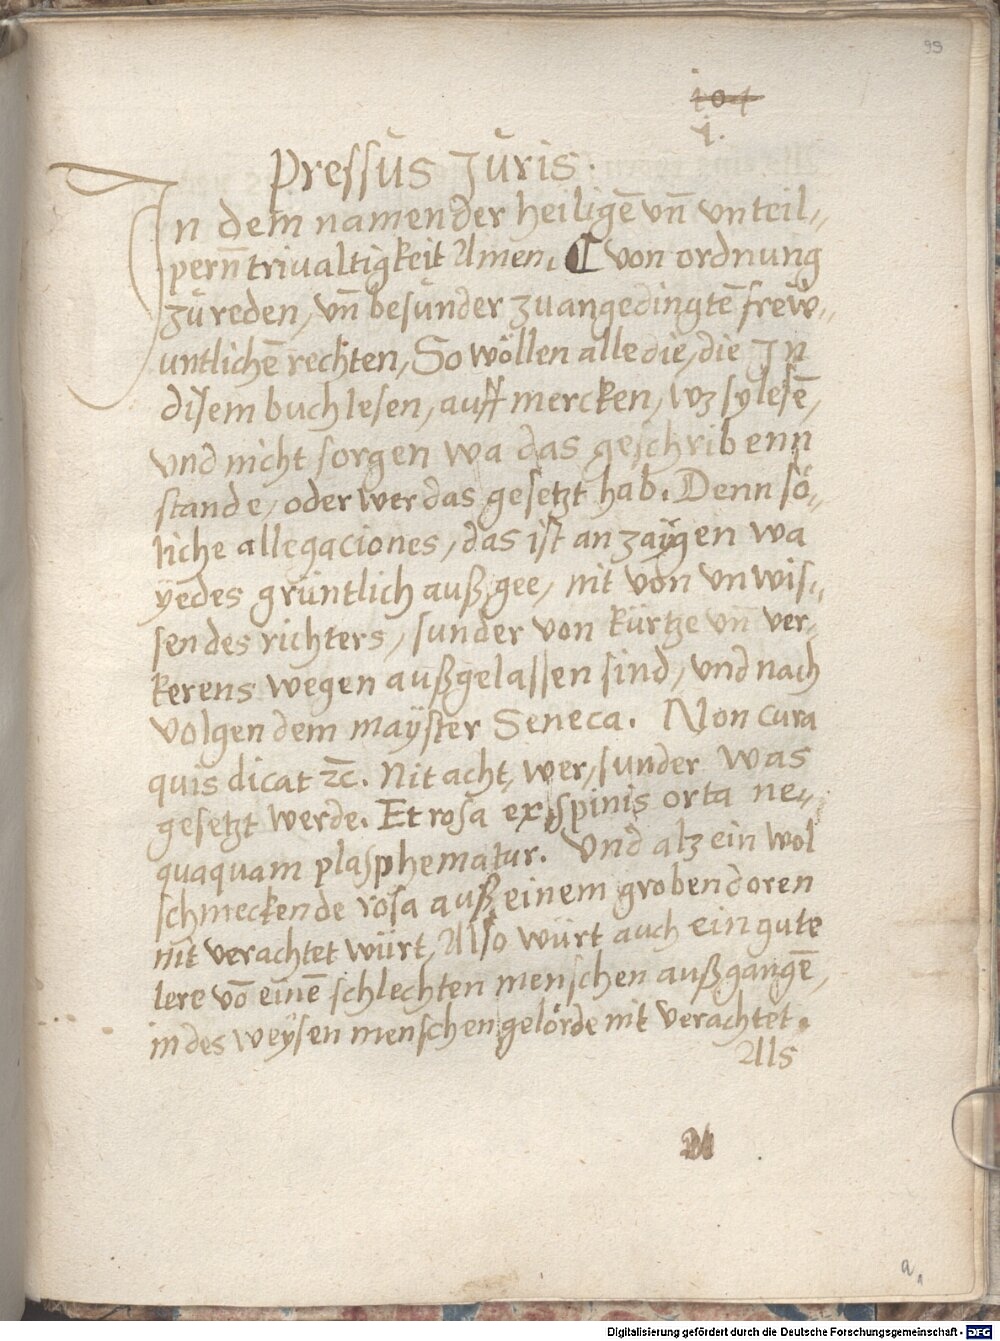 99
101
1.
Pressus Juris.
In dem namen der heiligē vn̄ vnteil„
pern̄ trivaltigkeit Amen. ¶ von ordnung
zů reden, vn̄ besůnder zu angedingtē frew„
untlichē rechten, So wöllen alle die, die Jn
disem buch lesen, auff mercken, wz sy lesē,
vnd nicht sorgen wa das geschribenn
stande, oder wer das gesetzt hab. Denn sö„
liche allegaciones, das ist an zaÿgen wa
ÿedes grüntlich auß gee, nit von vnwis„
sen des richters, sunder von kürtze vn̄ ver„
kerens wegen außgelassen sind, vnd nach
volgen dem maÿster Seneca. Non cura
quis dicat ⁊c̄. Nit acht, wer, sunder was
gesetzt werde. Et rosa ex spinis orta ne„
quaquam plasphematur. Vnd alz ein wol
schmeckende rosa auß einem groben doren
nit verachtet würt, Also würt auch ein gute
lere vō einē schlechten menschen außgangē,
in des weÿsen menschen gelörde nit verachtet.
Als
a
1
Digitalisierung gefördert durch die Deutsche Forschungsgemeinschaft - DFG